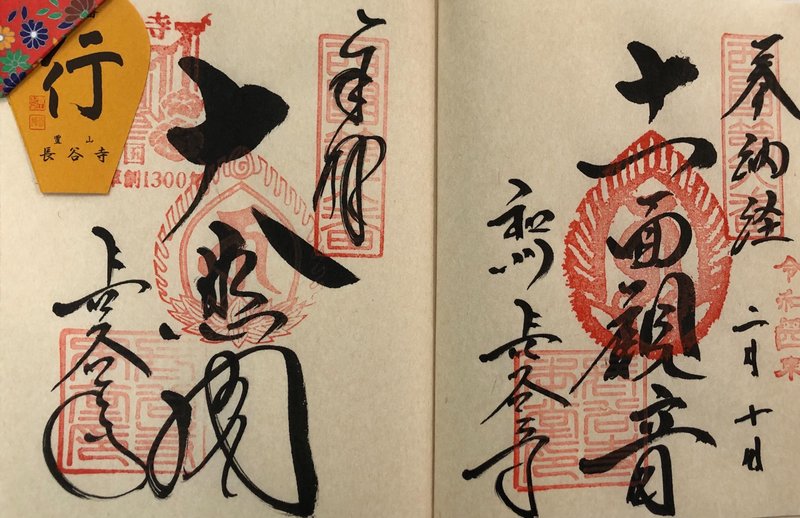 奉納経
二月十日
十一面觀音
和州 長谷寺
奉拝
大悲閣
長谷寺
行
豐山
長谷寺
創1300年